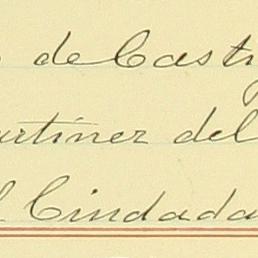 de Cast
artinez del
Ciudada